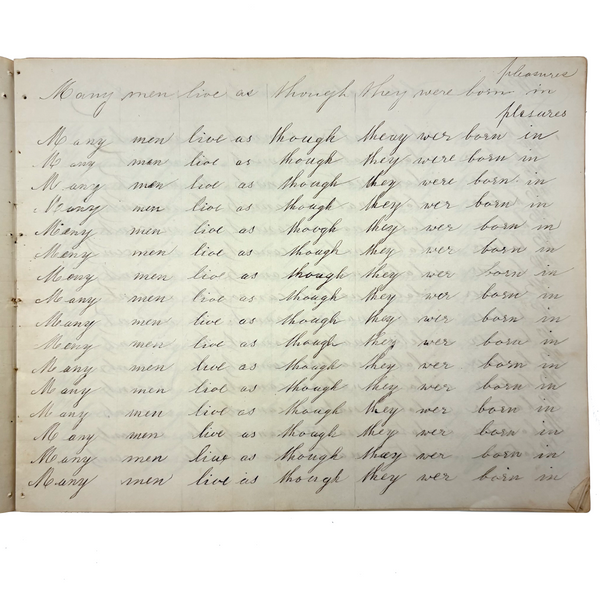 pleasures
Many men live as though they were born in
plesures
Many men live as though theay wer born in
Many men live as though they were born in
Many men live as though they were born in
Many men live as though they wer born in
Many men live as though they wer born in
Many men live as though they wer born in
Many men live as though they wer born in
Many men live as though they wer born in
Many men live as though they wer born in
Many men live as though they wer born in
Many men live as though they wer born in
Many men live as though they wer born in
Many men live as though they wer born in
Many men live as though they wer born in
Many men live as though they wer born in
Many men live as though they wer born in